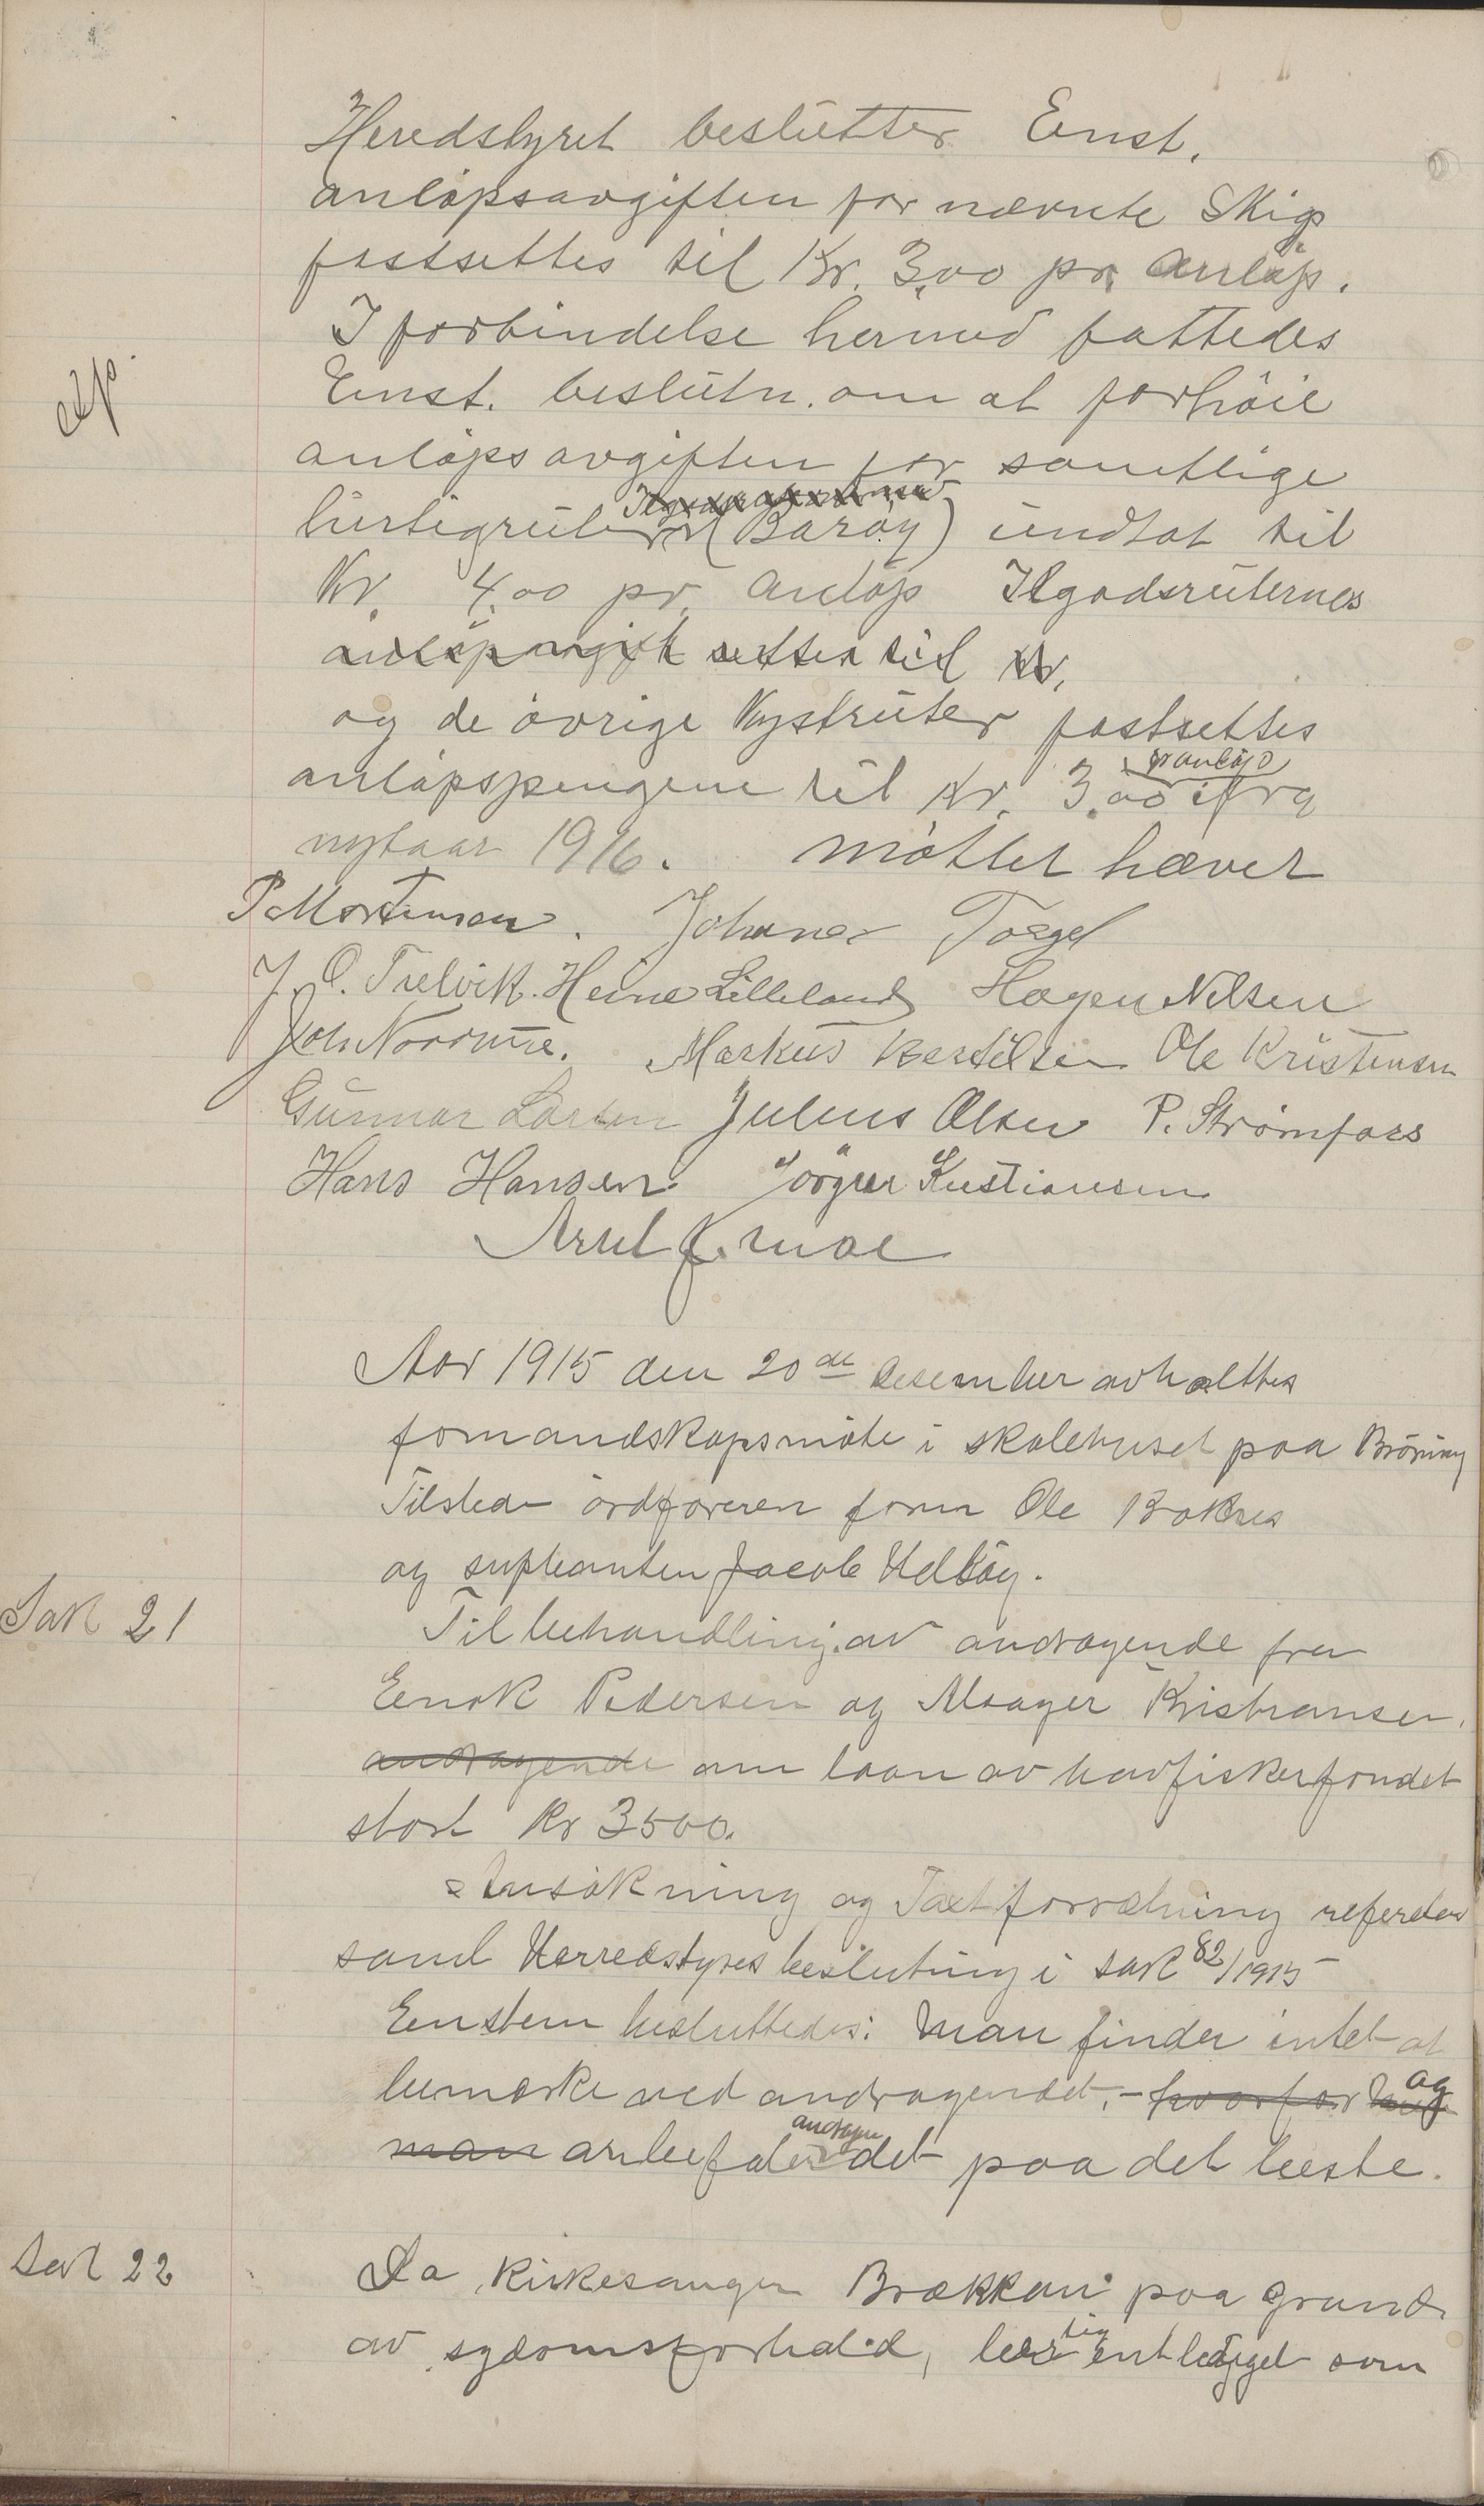 Heredstyret beslutter Enst.
anløpsavgiften for nævnte Skip
fastsettes til Kr. 3,00 pr. Anløp.
I forbindelse hermed fattedes
Enst. beslutn. om at forhøie
anløpsavgiften for samtlige
hurtigruter (Barøy) undtat til
Kr. 4,00 pr. Anløp Ilgodsruternes
anløpsavgift settes til Kr.
og de øvrige Kystruter fastsettes
pr anløp
anløpspengene til Kr. 3,00 ifra
nytaar 1916. Møttet hævet
P Mortensen. Johan
J. O. Trelvik. Heine Lilleland Hagen Nilsen
Markus Bertilsen Ole Kristensen
Gunnar Larsen Julius Olsen P. Strømfors
Hans Hansen Jørgen Kristiansen
J. Moe
Aar 1915 den 20de desember avholttes
fomandskapsmøte i skolehuset paa
Tilstede ordføreren form Ole Boknes
og supleanten Jacob
Sak 21
Til behandling av andragende fra
Enok Pedersen og Kristiansen.
andragende om laan av havfiskerfondet
stort Kr 3500.
Ansøkning og Taxtforretning referertes
samt Herredstyres beslutning i sak 82/1915
Enstem besluttedes: Man finder intet at
bemerke ved andragendet, hvorfor og
man anbefaler andragendet paa det beste.
Sak 22
Da Kirkesanger Brækkan paa grund
av sydomsforhold, ber sig entlediget som